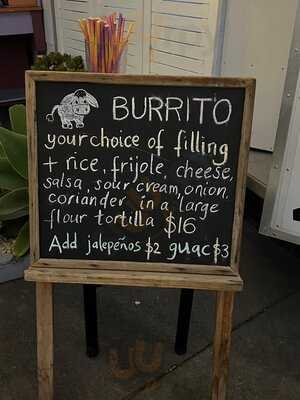 BURRITO
your choice of filling
+ rice, frijole, cheese,
salsa, sour cream, onion,
coriander in a large
flour tortilla $16
Add jalepeños $2 guac $3